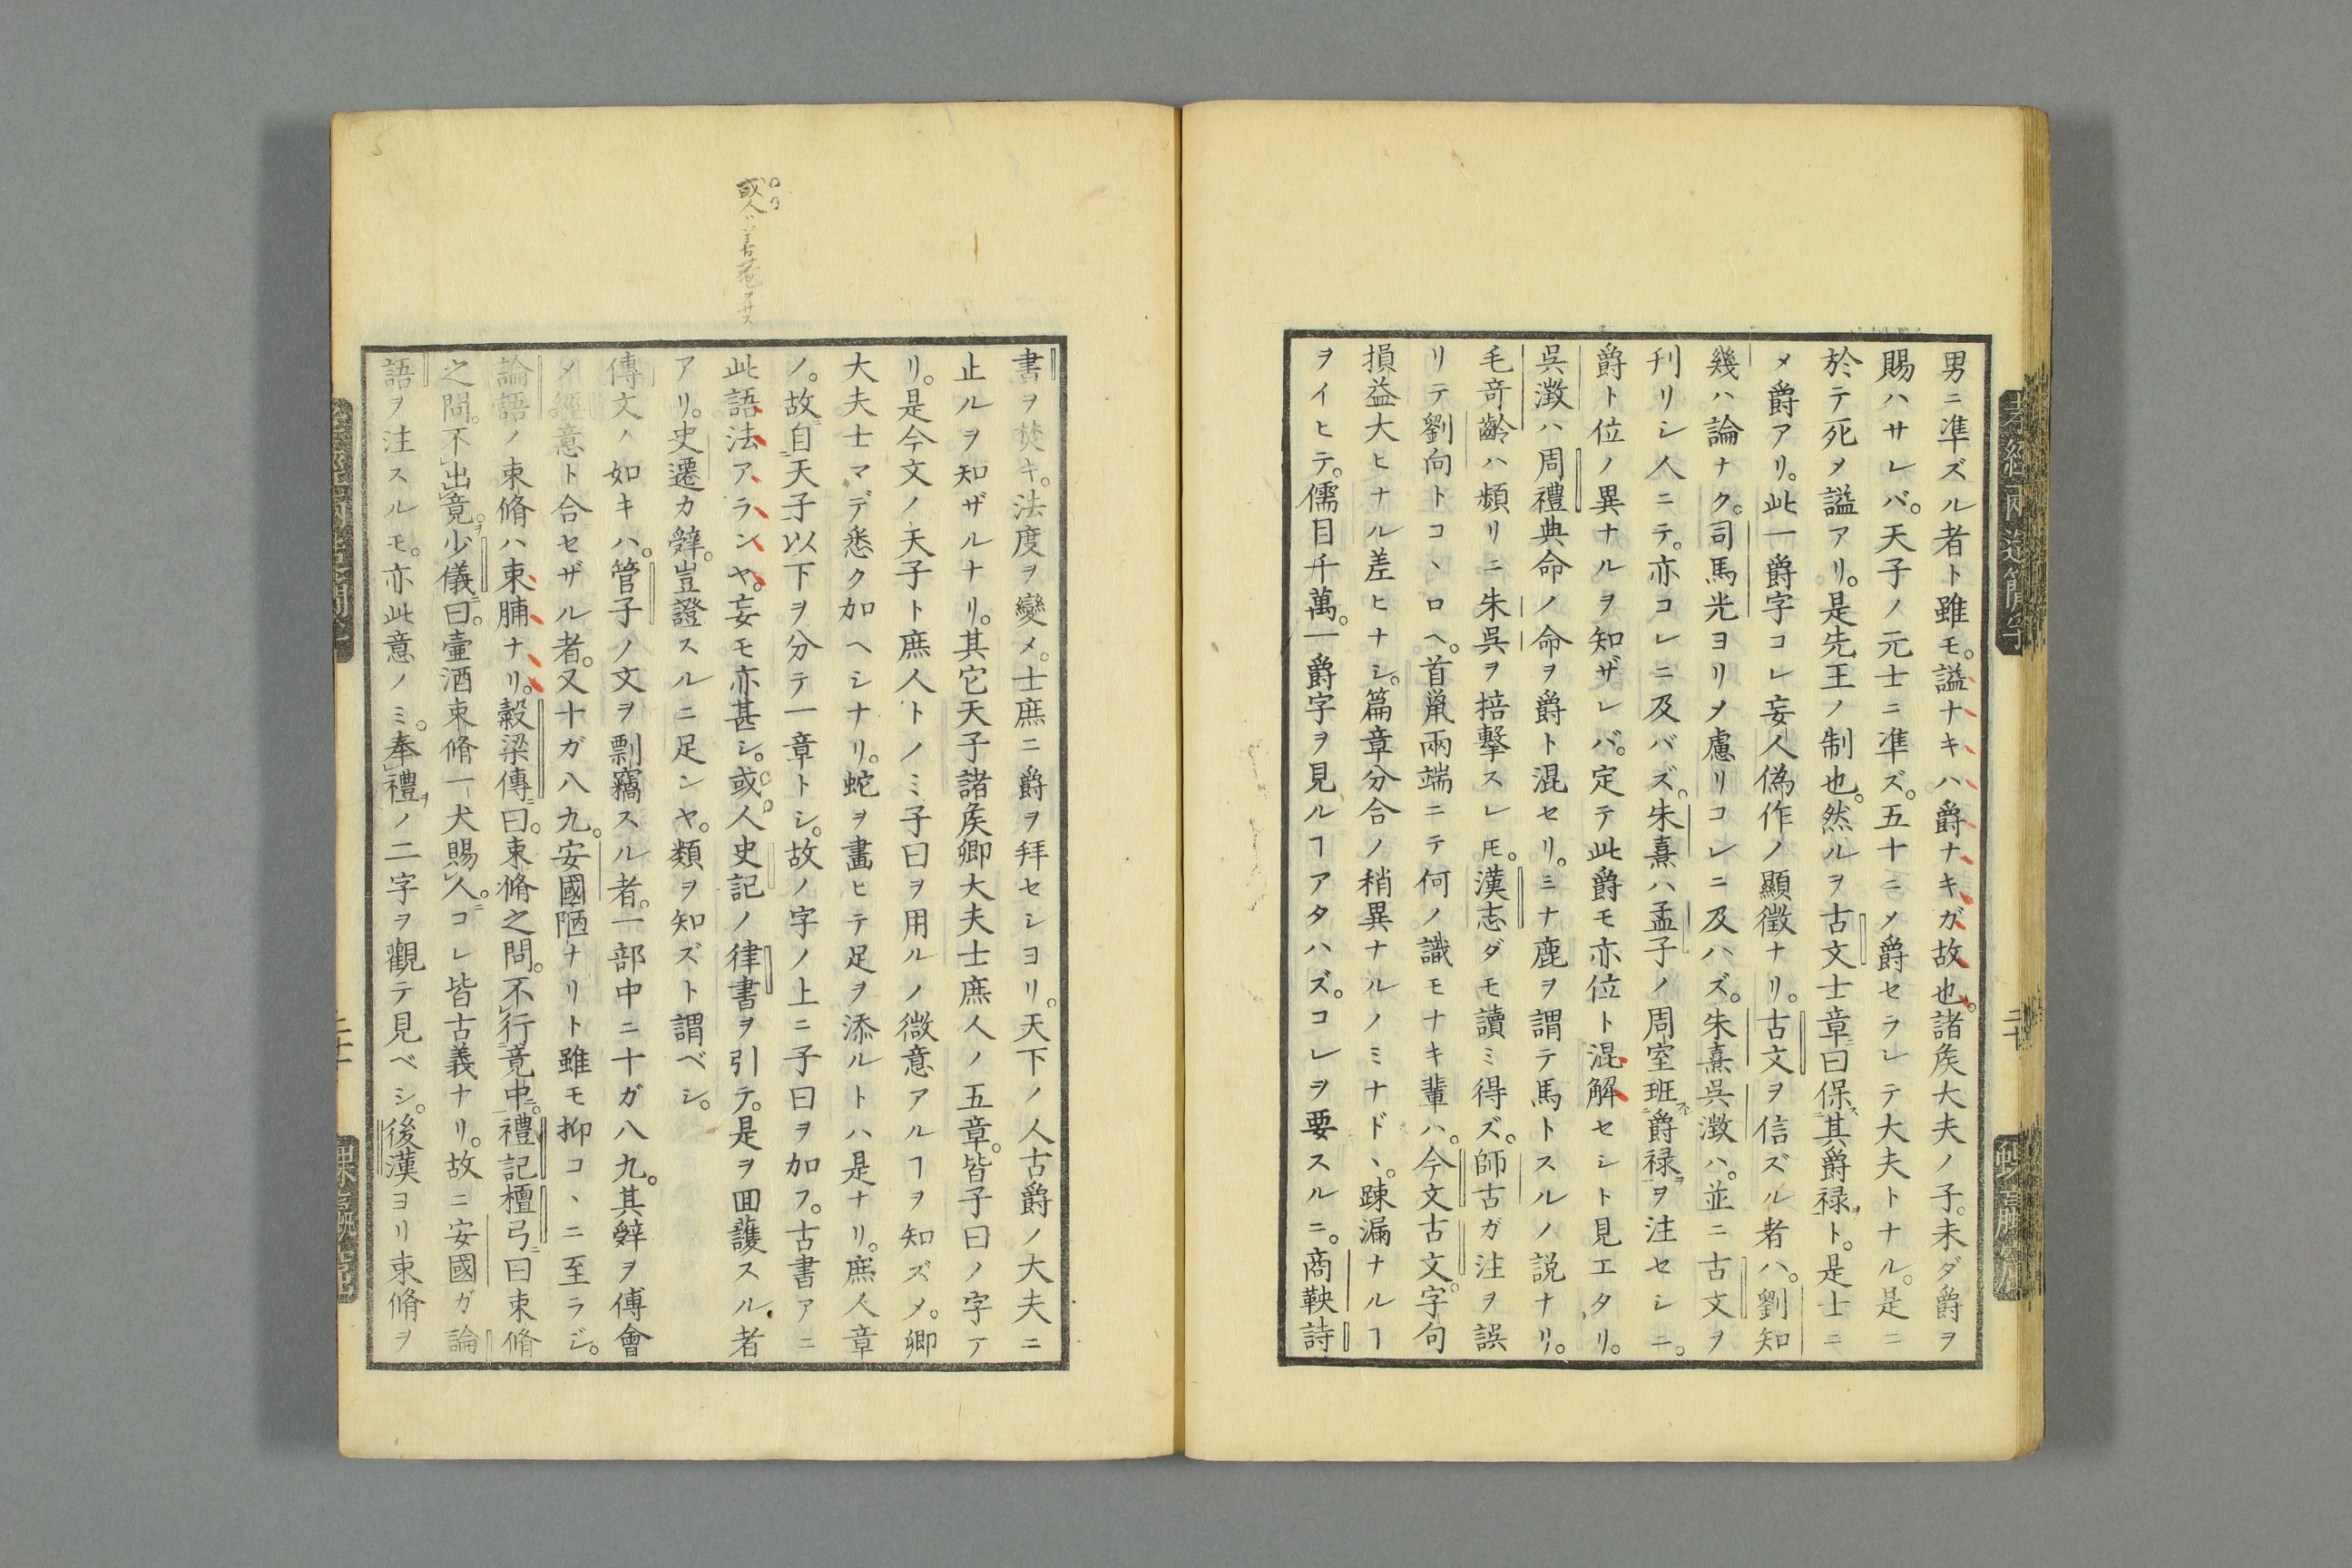 男ニ準ズル者ト雖モ。謚ナキハ爵ナキガ故也。諸矦大夫ノ子。未ダ爵ヲ
賜ハサレバ。天子ノ元士ニ準ズ。五十ニメ爵セラレテ大夫トナル。是ニ
於テ死メ謚アリ。是先王ノ制也。然ルヲ古文士章ニ曰保其爵禄ト。是士ニ
メ爵アリ。此一爵字コレ妄人偽作ノ顯徴ナリ。古文ヲ信ズル者ハ。劉知
幾ハ論ナク。司馬光ヨリメ慮リコレニ及ハズ。朱熹呉澂ハ。並ニ古文ヲ
刊リシ人ニテ。亦コレニ及バズ。朱熹ハ孟子ノ周室班爵禄ヲ注セシニ。
爵ト位ノ異ナルヲ知ザレバ。定テ此爵モ亦位ト混解セシト見エタリ。
呉澂ハ周禮典命ノ命ヲ爵ト混セリ。ミナ鹿ヲ謂テ馬トスルノ説ナリ。
毛奇齡ハ頻リニ朱呉ヲ掊擊スレ𪜈。漢志ダモ讀ミ得ズ。師古ガ注ヲ誤
リテ劉向トコヽロヘ。首鼠兩端ニテ何ノ識モナキ輩ハ。今文古文。字句
損益大ヒナル差ヒナシ。篇章分合ノ稍異ナルノミナドヽ。踈漏ナルヿ
ヲイヒテ。儒目千萬。一爵字ヲ見ルヿアタハズ。コレヲ要スルニ。商鞅詩
書ヲ焚キ。法度ヲ變メ。士庶ニ爵ヲ拜セシヨリ。天下ノ人古爵ノ大夫ニ
止ルヲ知ザルナリ。其它天子諸矦卿大夫士庶人ノ五章。皆子曰ノ字ア
リ。是今文ノ天子ト庶人トノミ子曰ヲ用ルノ微意アルヿヲ知ズメ。卿
大夫士マデ悉ク加ヘシナリ。蛇ヲ畫ヒテ足ヲ添ルトハ是ナリ。庶人章
ノ。故自天子以下ヲ分テ一章トシ。故ノ字ノ上ニ子曰ヲ加フ。古書アニ
此語法アランヤ。妄モ亦甚シ。或人史記ノ律書ヲ引テ。是ヲ囬護スル者
アリ。史遷カ辤。豈證スルニ足ンヤ。類ヲ知ズト謂ベシ。
傳文ノ如キハ。管子ノ文ヲ剽竊スル者。一部中ニ十ガ八九。其辤ヲ傅會
メ。經意ト合セザル者。又十ガ八九。安國陋ナリト雖モ抑コヽニ至ラジ。
論語ノ束脩ハ束脯ナリ。穀梁傳ニ曰。束脩之問。不行竟中。禮記檀弓ニ曰束脩
之問。不出竟。少儀ニ曰。壷酒束脩一犬賜人。コレ皆古義ナリ。故ニ安國ガ論
語ヲ注スルモ。亦此意ノミ。奉禮ノ二字ヲ觀テ見ベシ。後漢ヨリ束脩ヲ
二十